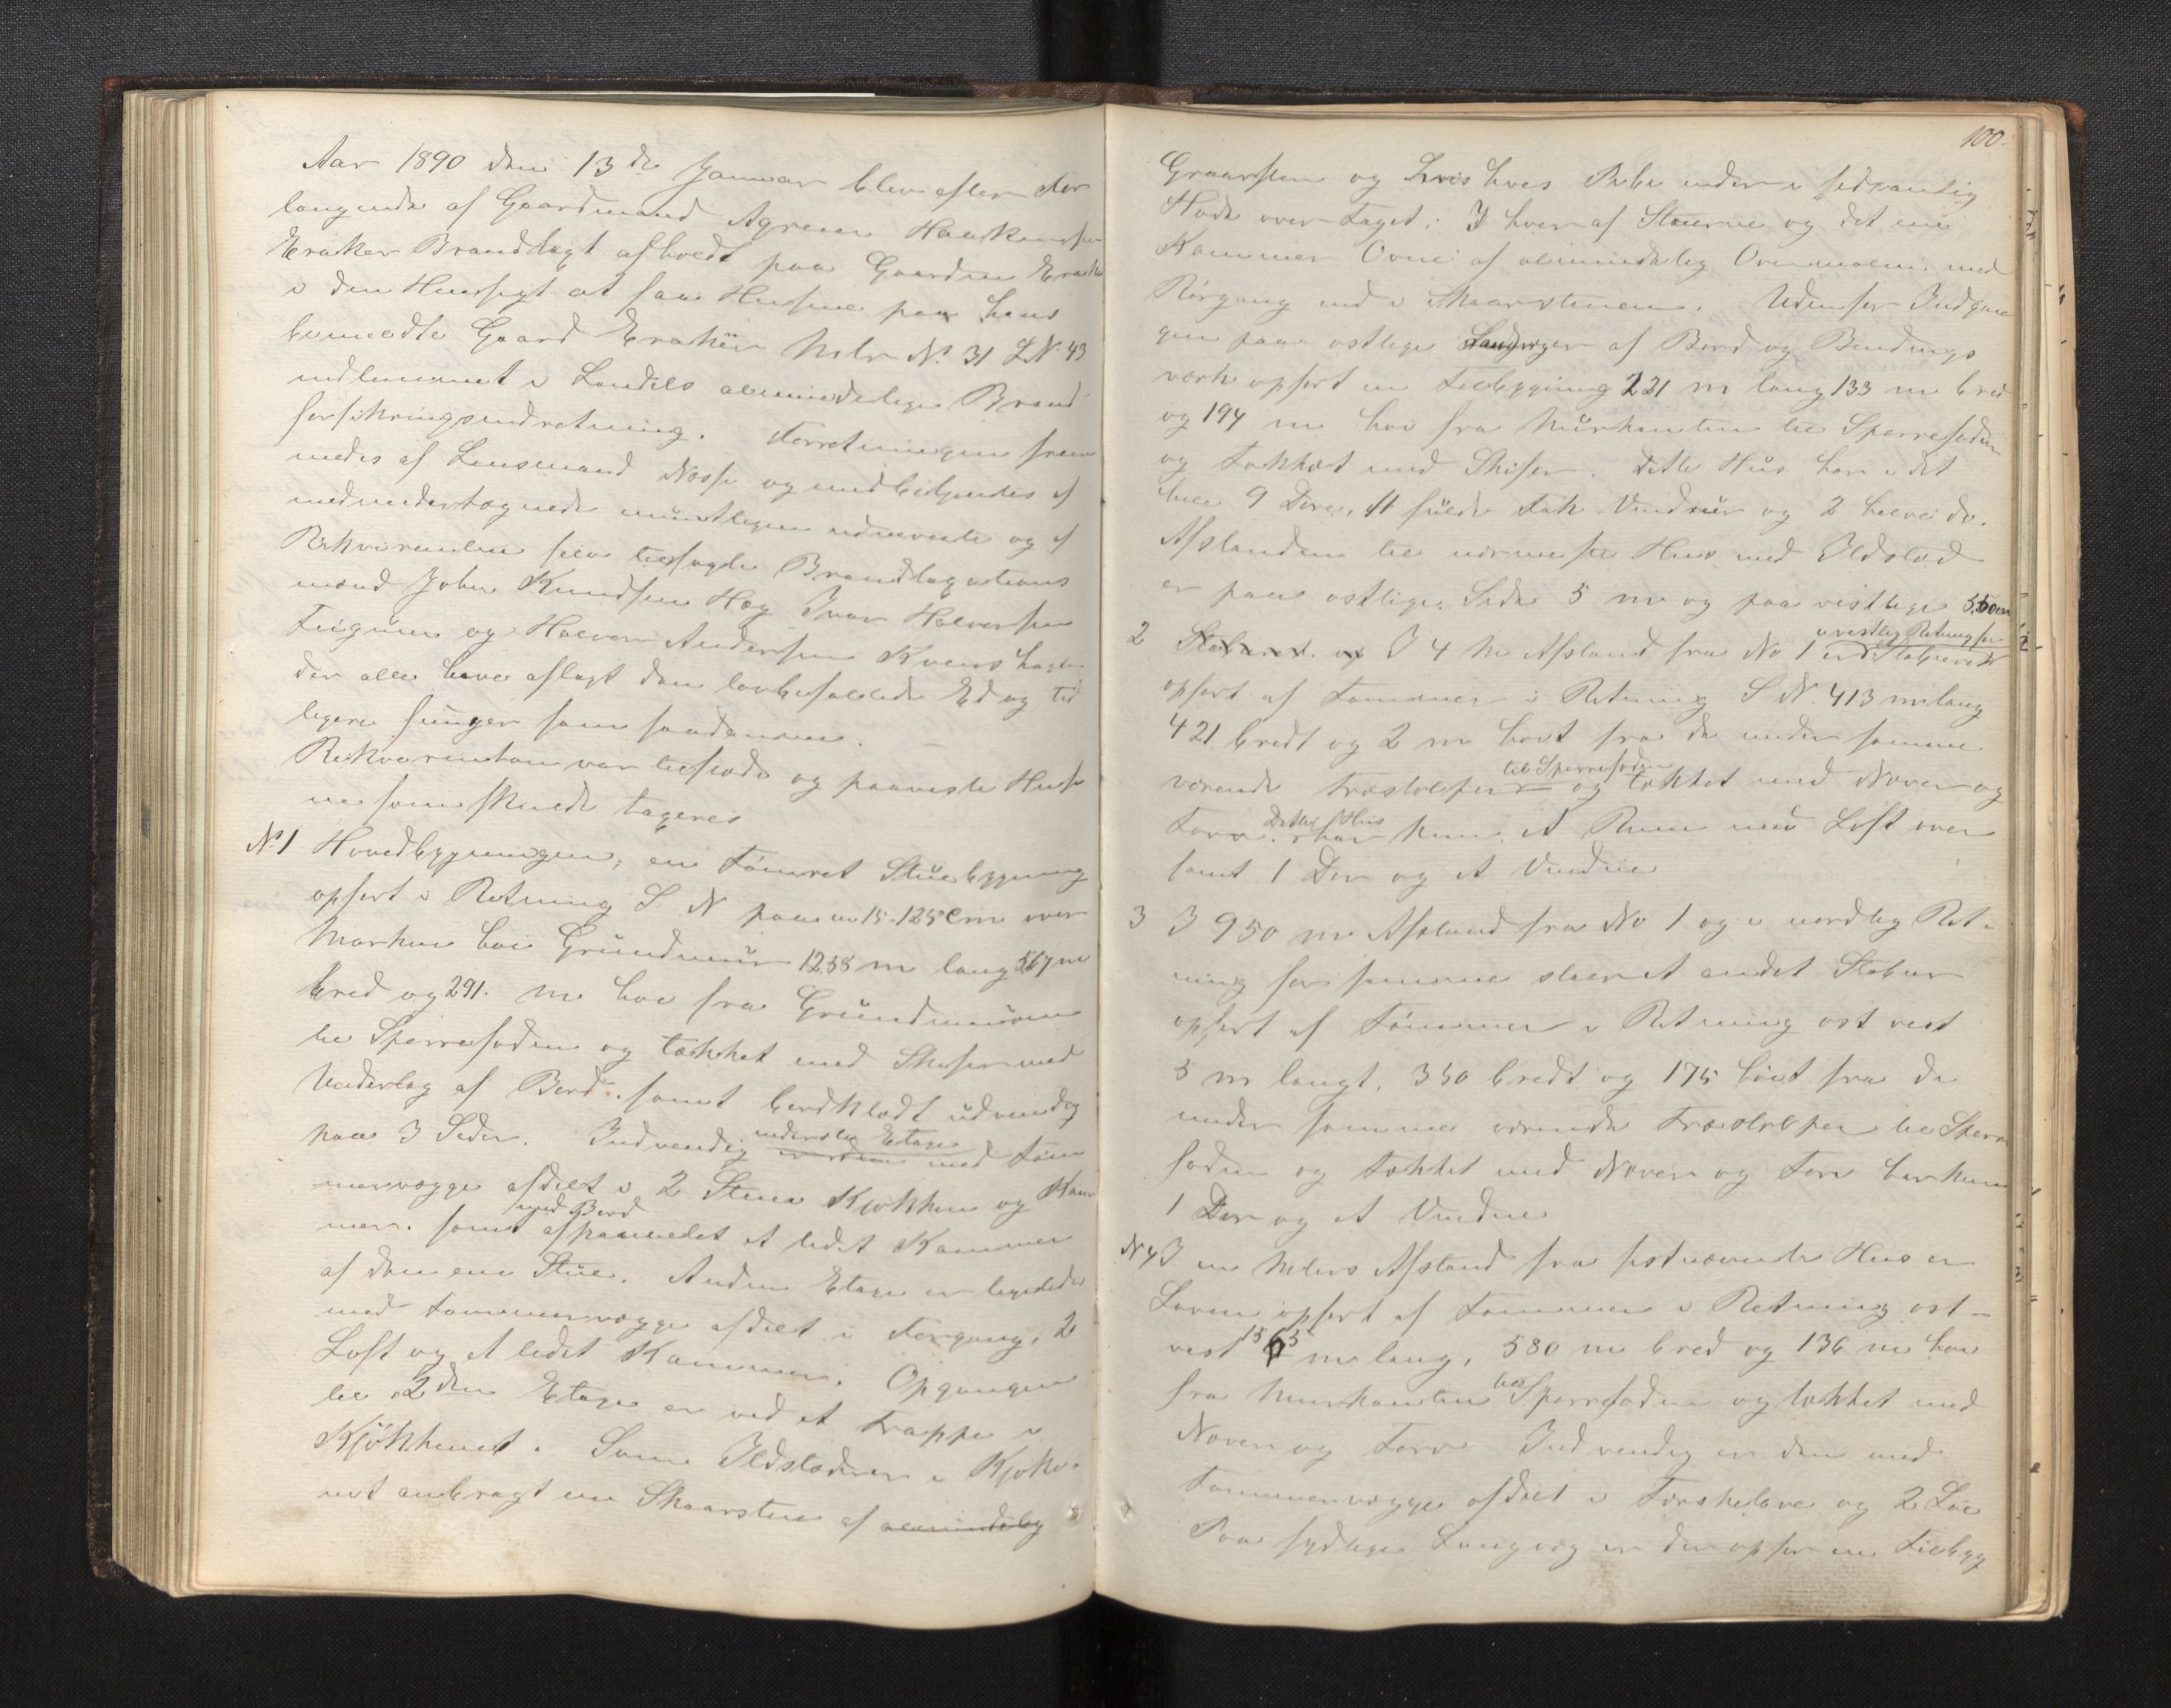 Aar 1890 den 13de Januar blev efter For
langende af Gaardmand Agren Haakensen
Eraker Brandtagt afholdt paa Gaarden Eraker
i den Hensigt at faa Husene paa hans
benævnte Gaard Eraker Mtr No. 31 LN. 43
indlemmet i Landets almindelige Brand
forsikringsindretning. Forretningen frem
medes af Lensmand Nosse og medbetjentes af
medundertegnede mundtligen udnævnte og af
Rekvirenten selv tilsagte Brandtagations
mænd John Knudsen Hag Ivar Halvorsen
og Halvor Andersen
der alle have aflagt den lovbefalede Ed og tid
ligere funger som saadanne. –
Rekvirenten var tilstede og paaviste Huse
ne som skulde tageres
No 1 Hovedbygningen, en tømret Stuebygning
opført i Retning S N paa en 15-125 cm over
Marken høi Grundmuur 1238 m lang 567 m
bred og 291. m høi fra Grundmuren
til Sperrefoden og tækket med Skifer med
Underlag af Bord. samt bordklædt udvendig
paa 3 Sider. Indvendig understa Etage med Tøm
mervægge afdelt i 2 Stuer Kjøkken og Kam
mer. samt med Bord afpanelet et lidet Kammer
af den ene Stue. Anden Etage er ligeledes
med Tømmervægge afdelt i Forgang, 2
Loft og et lidet Kammer. Opgangen
til 2den Etage er ved et Trappe i
Kjøkkenet. Som Ildstæder er i Kjøke-
net anbragt en Skaarsten af almindelig
100.
Graasten og hvis Pibe ender i fedvanlig
Høde over Taget. I hver af Stuerne og det ene
Kammer Ovne af almindelig Ovnmalm med
Rørgang ind i Skaarstenen. Udenfor Indgan
gen paa østlige Langvæg er af Bord og Bindings
værk opført en Tilbygning 221 m lang 133 m bred
og 194 m høi fra Murkanten til Sperrefoden
og Tækket med Skifer. Dette Hus har i det
hele 9 Døre, 11 fulde Fak Vinduer og 2 halve do.
Afstanden til nærmeste Hus med Ildsted
er paa østlige Side 5 m og paa vestlige 5.50 m
2 Staburet. og I 4 m Afstand fra No 1 i vestlig Retning for er Staburet
opført af Tømmer i Retning S N. 413 m lang
421 bredt og 2 m høit fra de under samme
værende Træstolper til Sperrefoden og tækket med Næver og
Torv. Dette Hus har kun et Rum med Loft over
samt 1 Dør og et Vindue
3 I 950 m Afstand fra No 1 og i nordlig Ret-
ning for samme staar et andet Stabur
opført af Tømmer i Retning øst vest
5 m langt. 350 bredt og 175 høit fra de
under samme værende Træstolper til Sperre
foden og tækket med Næver og Torv har kun
1 Dør og et Vindue
N 4 I en Meters Afstand fra sistnævnte Hus er
Laven opført af Tømmer i Retning øst –
vest 1565 m lang, 580 m bred og 136 m høi
fra Murkanten til Sperrefoden og tækket med
Næver og Torv Indvendig er den med
Tømmervægge afdelt i Tærskelave og 2 Løe
Paa sydlige Langvæg er der opført en Tilbyg